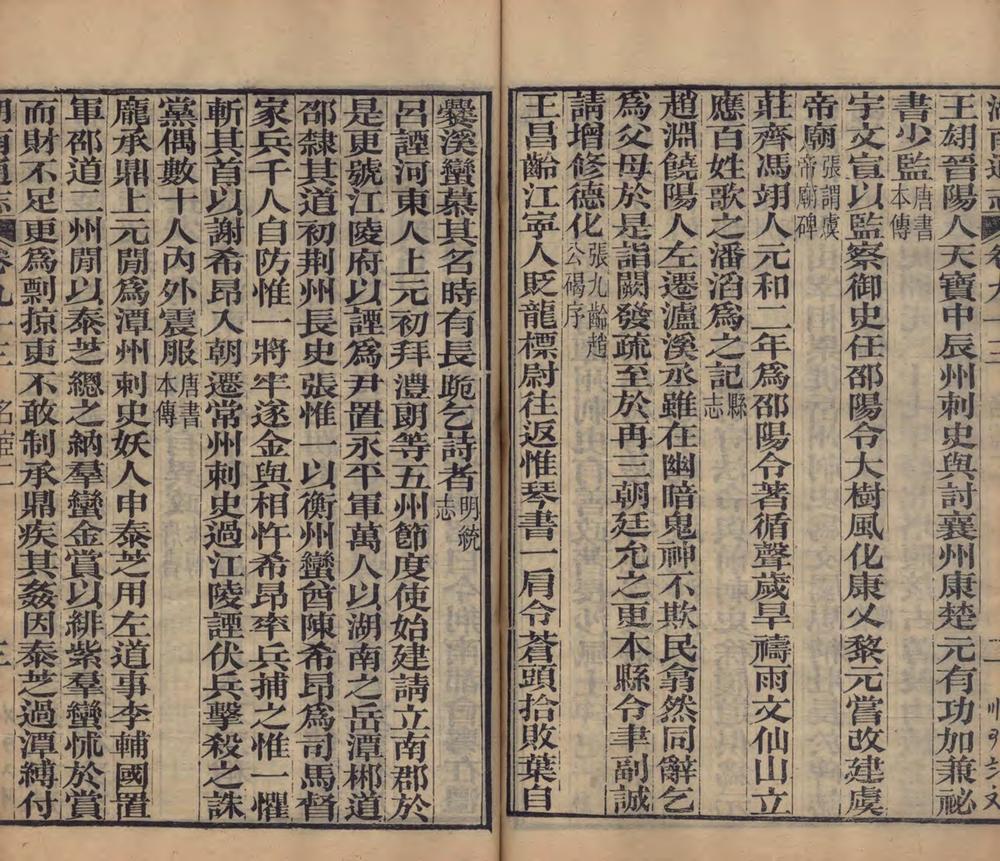 王翃晉陽人天寶中辰州刺史與討襄州康楚元有功加兼祕
書少監唐書本傳
宇文宣以監察御史任邵陽令大樹風化康乂黎元嘗改建虞
帝廟張謂虞帝廟碑
莊齊馮翊人元和二年為邵陽令著循聲歲旱禱雨文仙山立
應百姓歌之潘滔為之記縣志
趙淵饒陽人左遷瀘溪丞雖在幽暗鬼神不欺民翕然同辭乞
為父母於是詣闕發疏至於再三朝廷允之更本縣令聿副誠
請增修德化張九齡趙公碣序
王昌齡江寧人貶龍標尉往返惟琴書一肩令蒼頭拾敗葉自
爨溪蠻慕其名時有長跪乞詩者明統志
呂諲河東人上元初拜澧朗等五州節度使始建請立南郡於
是更號江陵府以諲為尹置永平軍萬人以湖南之岳潭郴道
邵隸其道初荆州長史張惟一以衡州蠻酋陳希昂為司馬督
家兵千人自防惟一將牢遂金與相忤希昂率兵捕之惟一懼
斬其首以謝希昂入朝遷常州刺史過江陵諲伏兵擊殺之誅
黨偶數十人內外震服唐書本傳
龐承鼎上元閒為潭州刺史妖人申泰芝用左道事李輔國置
軍邵道二州閒以泰芝總之納羣蠻金賞以緋紫羣蠻怵於賞
而財不足更為剽掠吏不敢制承鼎疾其姦因泰芝過潭縛付